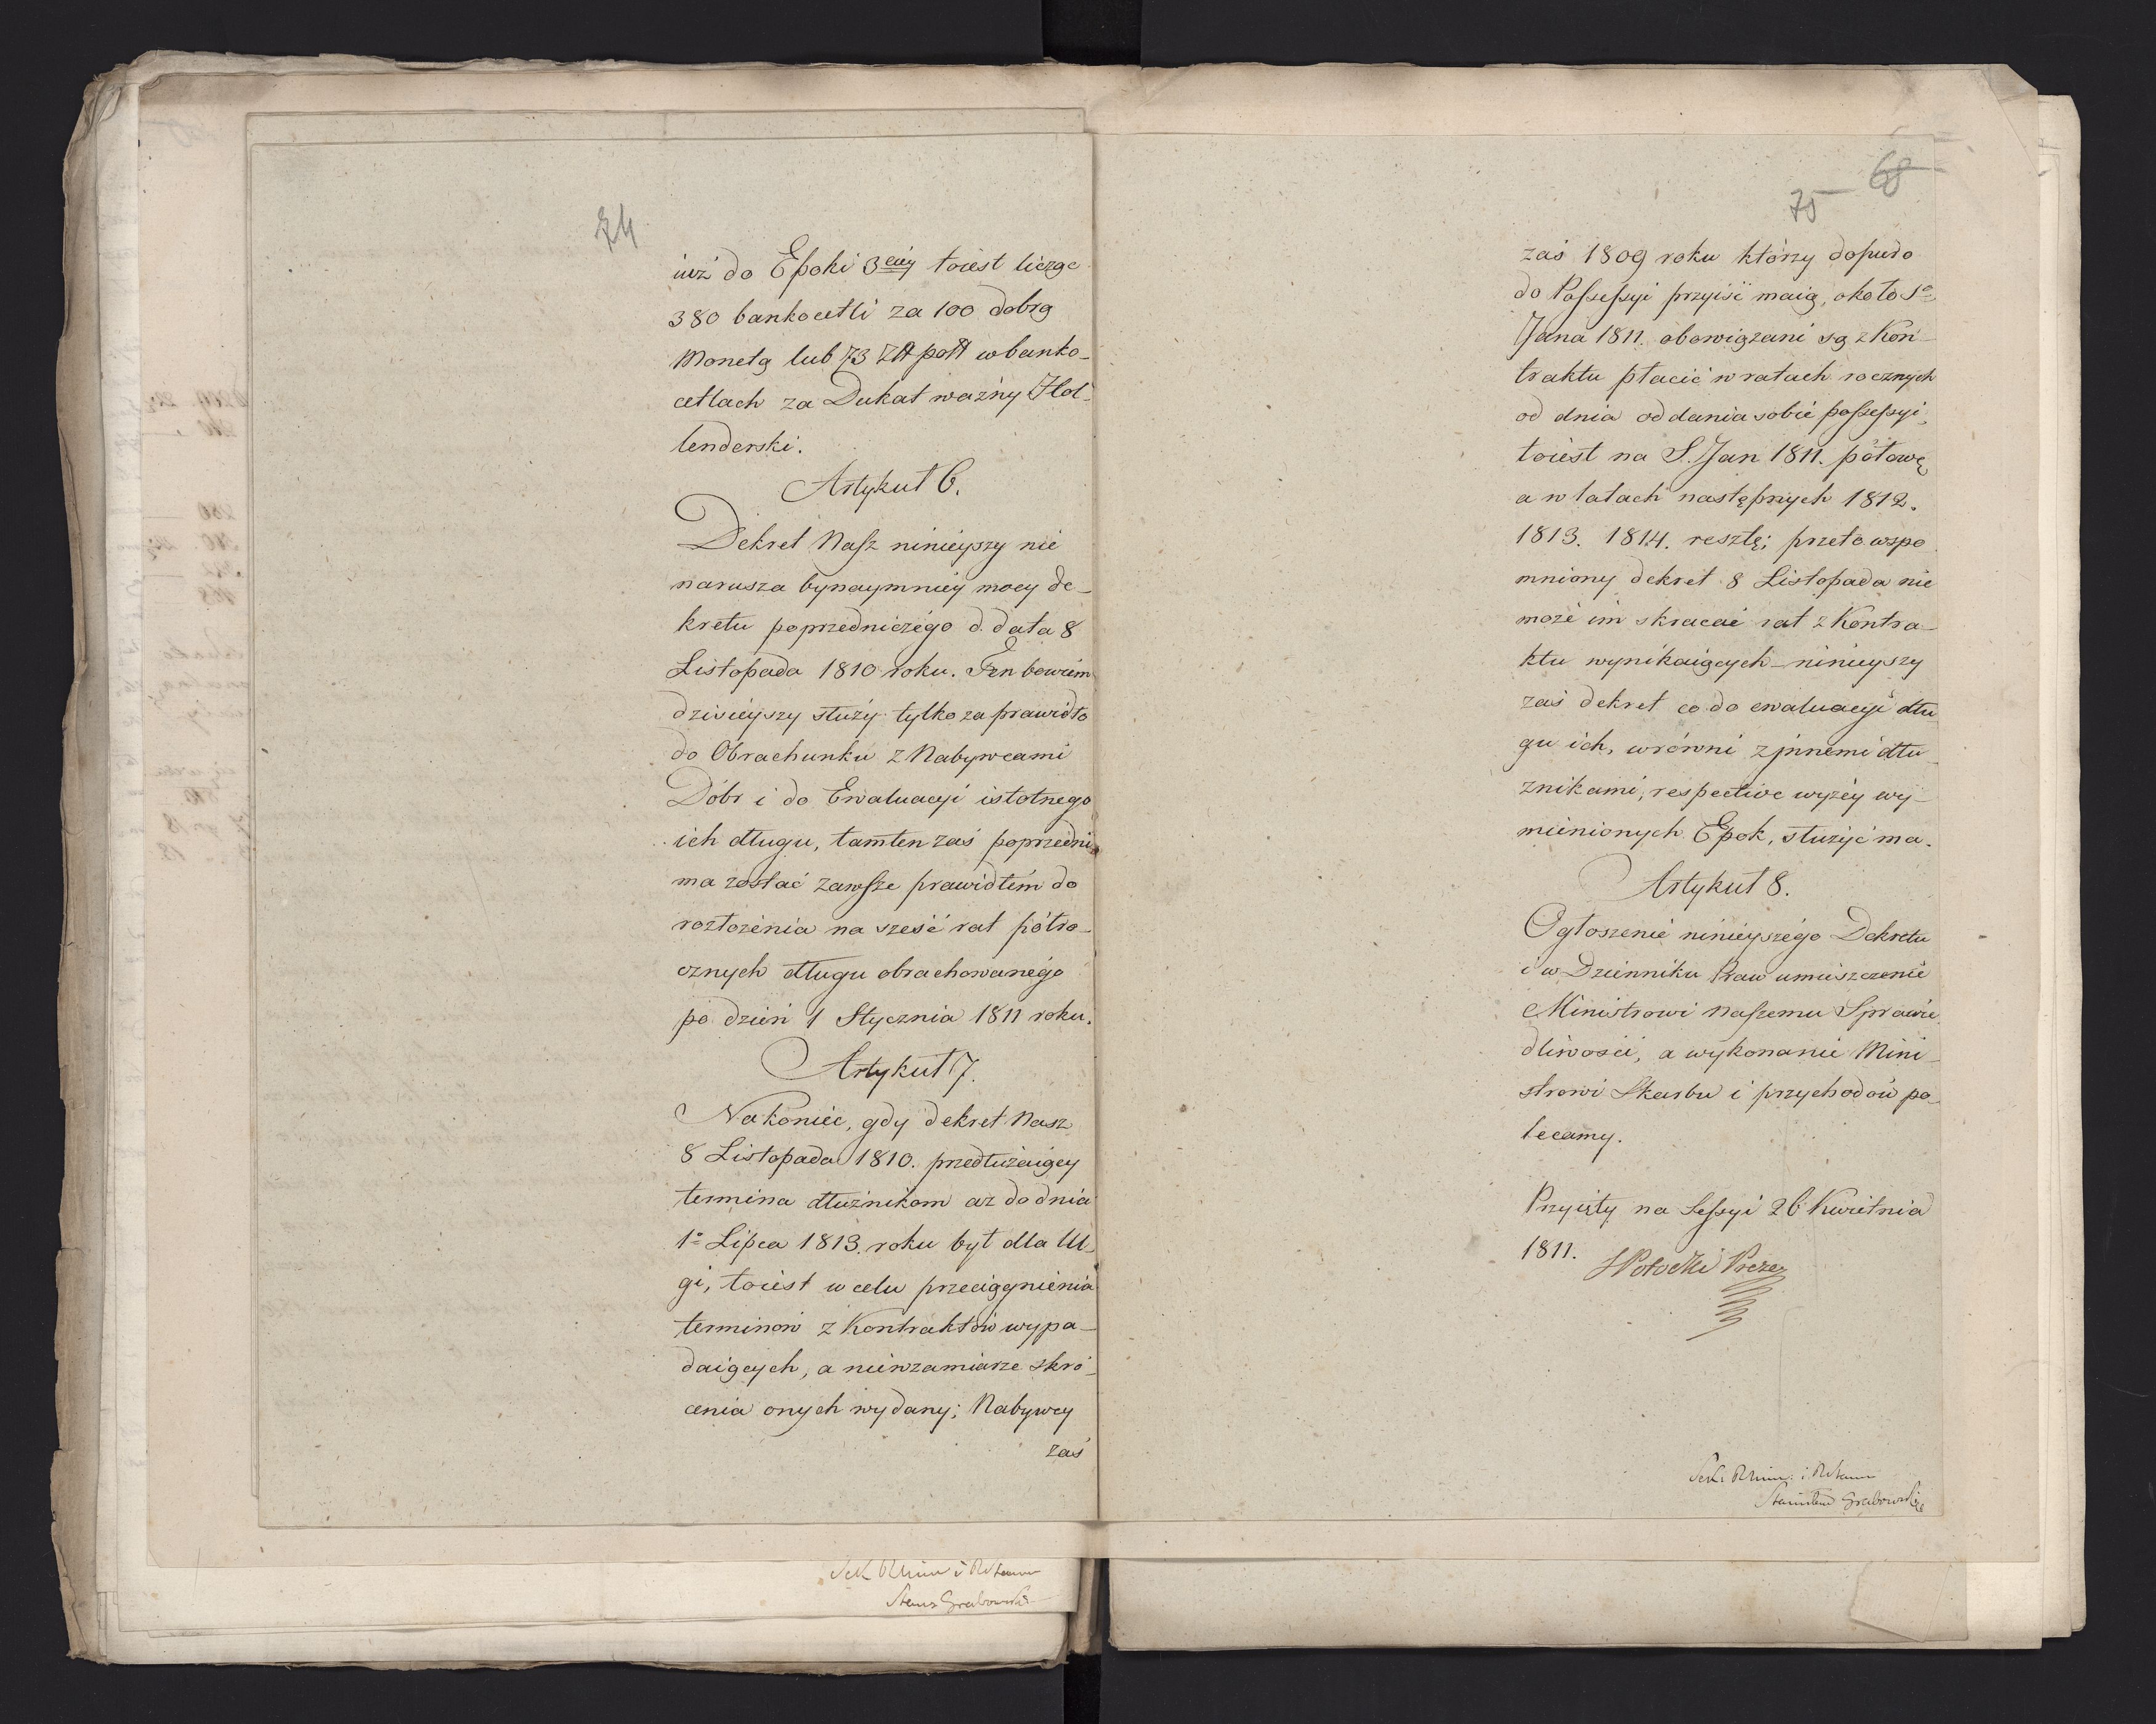 74
iuż do Epoki 3ciey toiest licząc
380 bankocetli za 100 dobrą
Monetą lub 73 Złł poll w banko-
cetlach za Dukat ważny Hol-
lenderski.
Artykuł 6.
Dekret Nasz ninieyszy nie
narusza bynaymniey mocy de-
kretu poprzedniczego d. data 8
Listopada 1810 roku. Ten bowiem
dzisieyszy służy tylko za prawidło
do Obrachunku z Nabywcami
Dóbr i do Ewaluacyi istotnego
ich długu, tamten zaś poprzedni
ma zostać zawsze prawidłem do
rozłożenia na sześć rat półro-
cznych długu obrachowanego
po dzień 1 Stycznia 1811 roku.
Artykuł 7.
Nakoniec, gdy dekret Nasz
8 Listopada 1810. przedłużaiący
termina dłużnikom aż do dnia
1o Lipca 1813. roku był dla Ul-
gi, toiest w celu przeciągnienia
terminów z Kontraktów wypa-
daiących, a nie w zamiarze skró-
cenia onych wydany; Nabywcy
zaś
Sek Rhiur i RStanu
Stanis Grabowski
68
75
zaś 1809 roku którzy dopiero
do Possessyi przyiść maią, około So
Jana 1811. obowiązani są z Kon-
traktu płacić w ratach rocznych
od dnia oddania sobie possessyi,
toiest na S. Jan 1811. połowę
a w latach następnych 1812.
1813. 1814. resztę; przeto wspo
mniony dekret 8 Listopada nie
może im skracać rat z Kontra-
ktu wynikaiących – ninieyszy
zaś dekret co do ewaluacyi dłu
gu ich, w równi z innemi dłu-
żnikami, respective wyżey wy-
mienionych Epok, służyć ma.
Artykuł 8.
Ogłoszenie ninieyszego Dekretu
i w Dzienniku Praw umieszczenie
Ministrowi Naszemu Sprawie
dliwości, a wykonanie Mini-
strowi Skarbu i przychodów po-
lecamy.
Przyięty na Sessyi 26 Kwietnia
1811.
SPotocki Prezes
Stanisław Grabowski